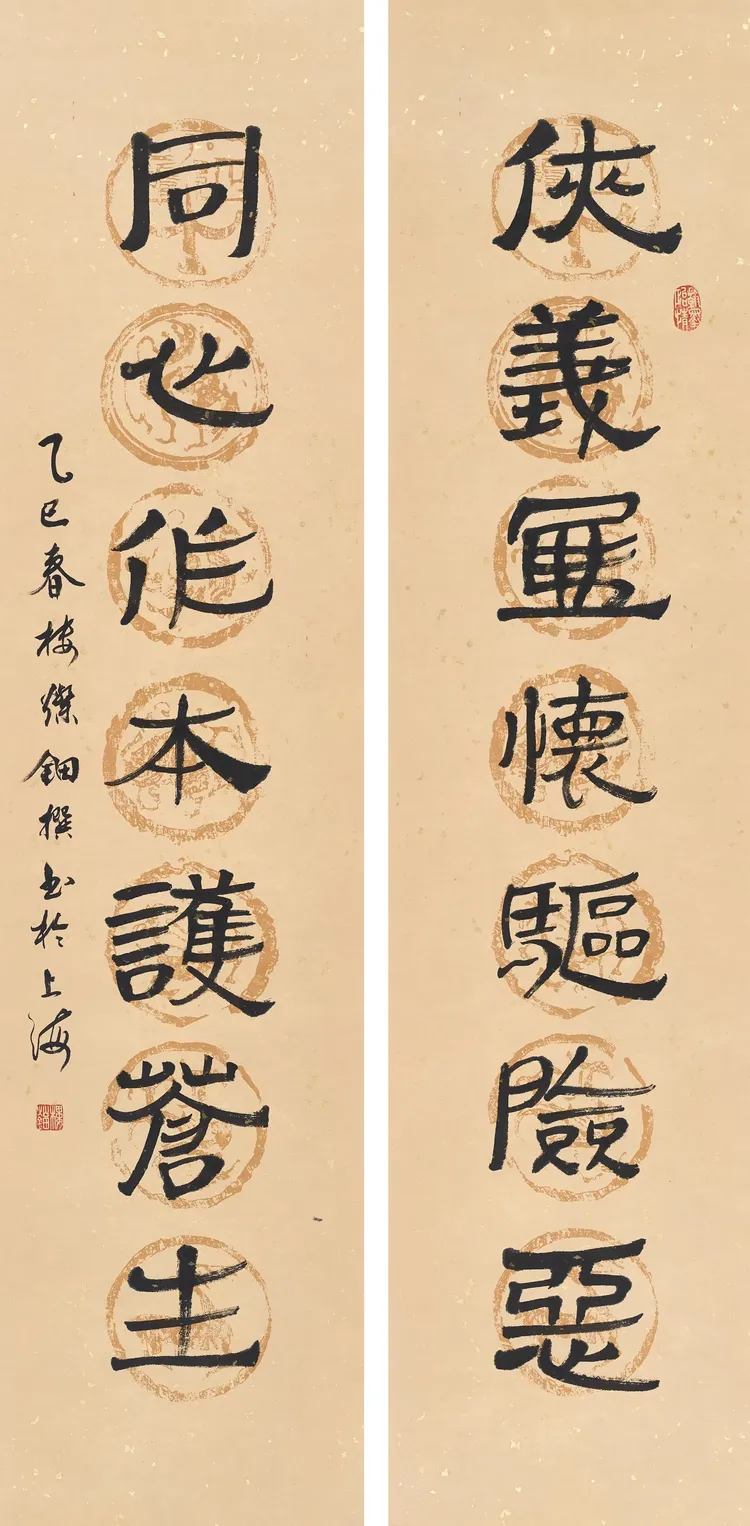 俠義懷驅險惡
同心作本護蒼生
乙巳春楼鈿撰书於上海